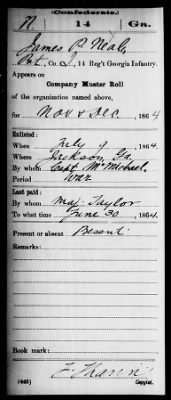 (Confederate.)
N 14 Ga.
James P. Neal
Co. , 14 Reg't Georgia Infantry.
Appears on
Company Muster Roll
of the organization named above,
for Nov & Dec, 1864
Enlisted:
When July 9, 186
Where Jackson, Ga.
By whom Capt. McMichael
Period War
Last paid:
By whom Maj. Taylor
To what time June 30, 1864.
Present or absent Present
Remarks:
Book mark:
(642) Copyist.